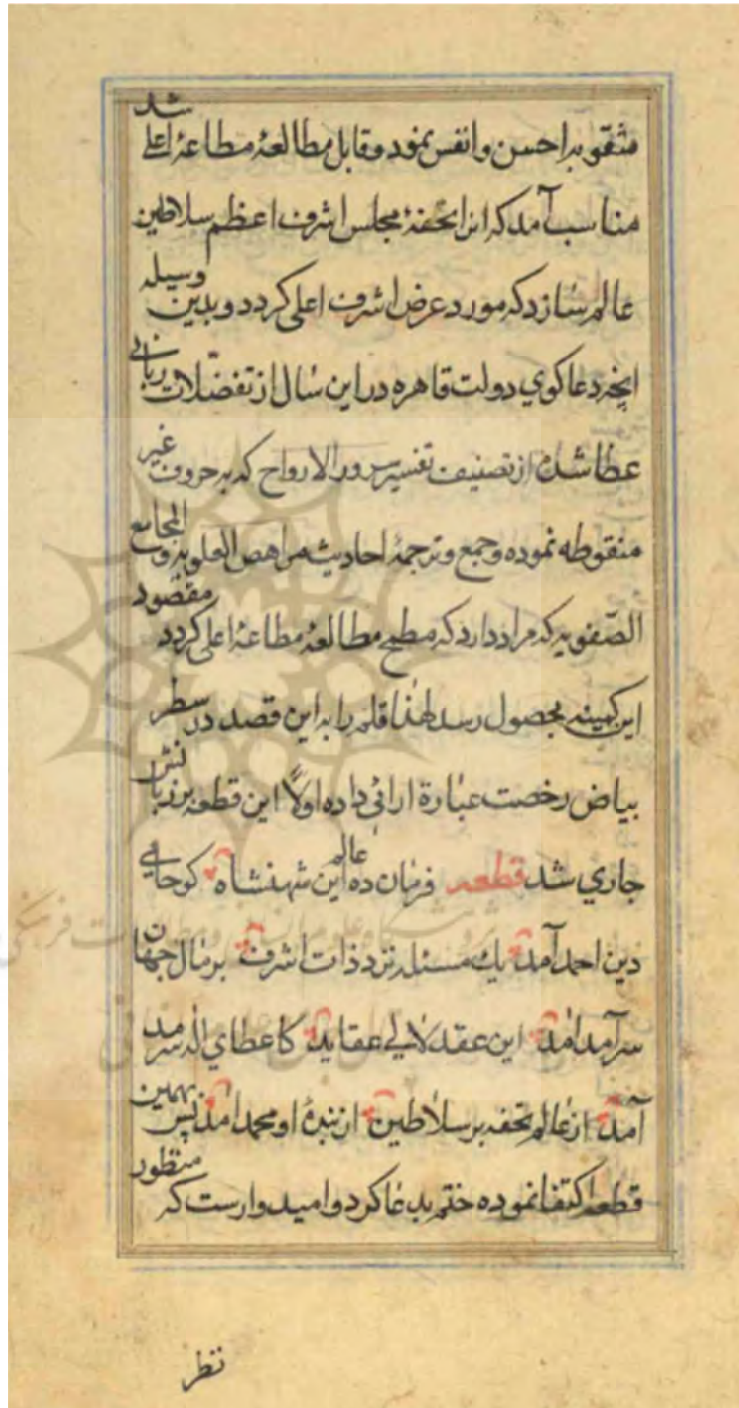 مثقوبه احسن وانفس نمود وقابل مطالعهٔ مطاعهٔ اعلی شد
مناسب آمد که این تحفهٔ مجالس اشرف اعظم سلاطین
عالم سازد که مورد عرض اشرف اعلی کردد وبدین وسیله
انچه دعاکوي دولت قاهره در این سال از تفضّلات ربانی
عطا شده از تصنیف تفسیر سرور الارواح که بر حروف غیر
منقوطه نموده وجمع وترجمهٔ احادیث العلویه و المجامع
الصّفویه که مراد دارد که مطمح مطالعهٔ مطاعهٔ اعلی کردد مقصود
این کمینه بحصول رسد لهذا قلم را به این قصد در سطر
بیاض رخصت عبارة ارائی داده اولًا این قطعه بر زبانش
جاري شد قطعه فرمان ده عالم این شهنشاه کو حامی
دین احمد آمد یك مسئله نزد ذات اشرف بر مال جهان
سرآمد امد این عقد لالی عقاید کا عطای اله سرمد
آمد از عالم تحفه بر سلاطین از بندهٔ او محمد امد پس بهمین
قطعه اکتفا نموده ختم بدعا کرد وامیدوارست که منظور
نظر